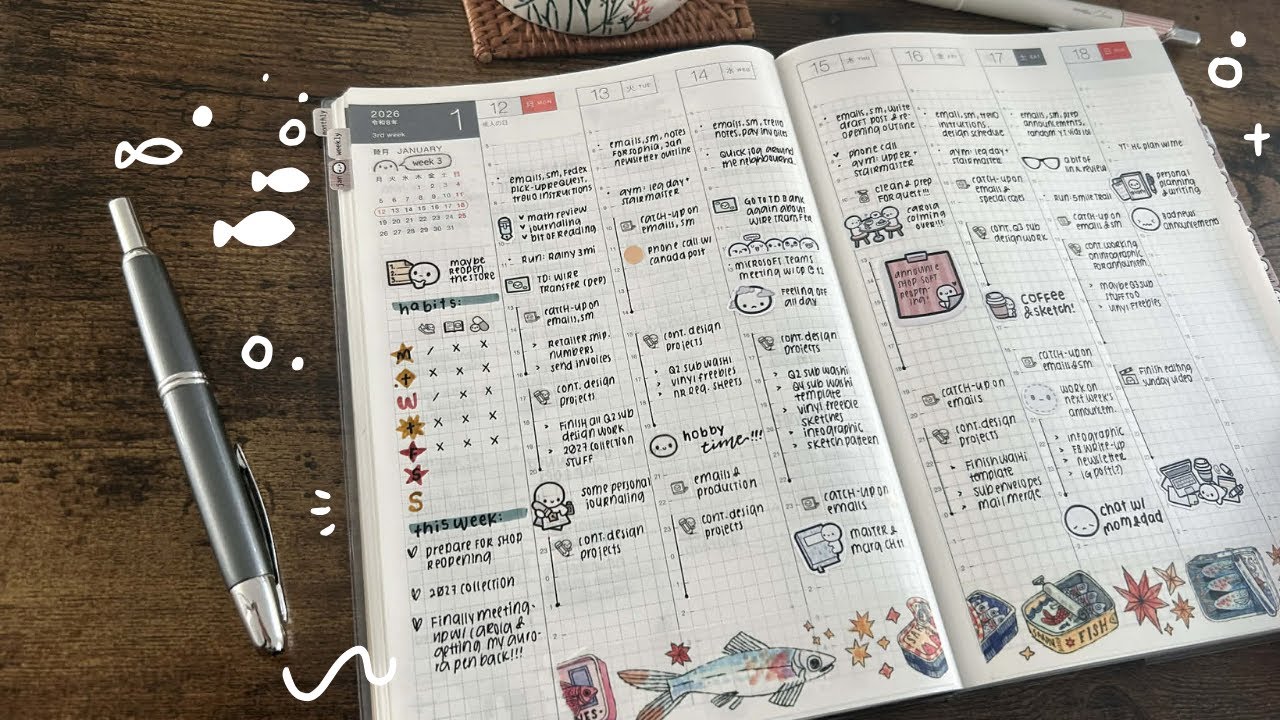 monthly
weekly
jan
2026
令和8年
3rd week
1
睦月 JANUARY
week 3
月 火 水 木 金 土 日
1 2 3 4
5 6 7 8 9 10 11
12 13 14 15 16 17 18
19 20 21 22 23 24 25
26 27 28 29 30 31
maybe
reopen
the store
habits:
M / x x
T x x x
W x x x
T / x x
F x x x
S x
S
this week:
prepare for shop
reopening
2027 collection
Finally meeting
up w/ carola &
getting my auro-
ra pen back!!!
12 月 MON
成人の日
emails, sm, Fedex
pick-up request,
trello instructions
math review
journaling
bit of reading
Run: Rainy 3mi
TD: wire
transfer (DEP)
catch-up on
emails, sm
> Retailer snip.
numbers
> send invoices
cont. design
projects
> Finish all Q2 sub
design work
> 2027 collection
stuff
some personal
journaling
cont. design
projects
13 火 TUE
emails, sm, notes
for sophia, jan
newsletter outline
gym: leg day+
stairmaster
catch-up on
emails, sm
phone call w/
canada post
cont. design
projects
> Q2 sub washi
> vinyl freebies
> NR Req. sheets
hobby
time~!!!
emails &
production
cont. design
projects
14 水 WED
emails, sm, trello
notes, pay invoices
Quick jog around
the neighbourhd.
Go to TD bank
again about
wire transfer
Microsoft teams
meeting w/ CP @ 12
Feeling off
all day
cont. design
projects
> Q2 sub washi
> Q4 sub washi
template
> vinyl freebie
sketches
> infographic
> sketch pattern
catch-up on
emails
master &
marg CH 11
15 木 THU
emails, sm, write
draft post & re-
opening outline
phone call
gym: upper+
stairmaster
clean & prep
for guest!!!
carola
coming
over!!!
announce
shop soft
reopen-
ing!
catch-up on
emails
cont. design
projects
> Finish washi
template
> sub envelopes
> mail merge
16 金 FRI
emails, sm, trello
instructions,
design schedule
gym: leg day+
stairmaster
catch-up on
emails &
special cases
cont. Q3 sub
design work
coffee
& sketch!
catch-up on
emails & sm
work on
next week's
announcem.
> infographic
> FB write-up
> newsletter
> ig post(?)
chat w/
mom & dad
17 土 SAT
emails, sm, prep
announcements,
a bit of
Run: 5mile trail
catch-up on
emails, sm
cont. working
on infographic
for announcem.
> maybe Q3 sub
stuff too
> vinyl freebies
Finish editing
sunday video
18 日 SUN
YT: HL plan w/ me
personal
planning
& writing
add news
announcements
FISH